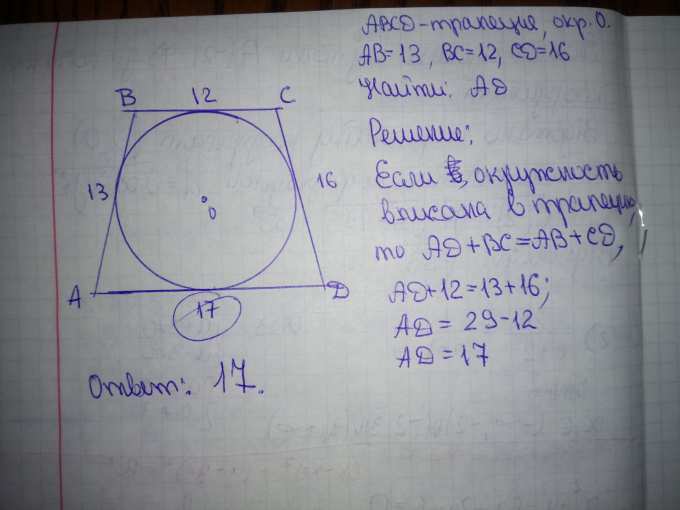 ABCD-трапеция, окр. O.
AB=13, BC=12, CD=16
Найти: AD
Решение:
Если окружность
вписана в трапецию,
то AD+BC=AB+CD,
AD+12=13+16;
AD=29-12
AD=17
B 12 C
13 16
O
A D
17
Ответ: 17.